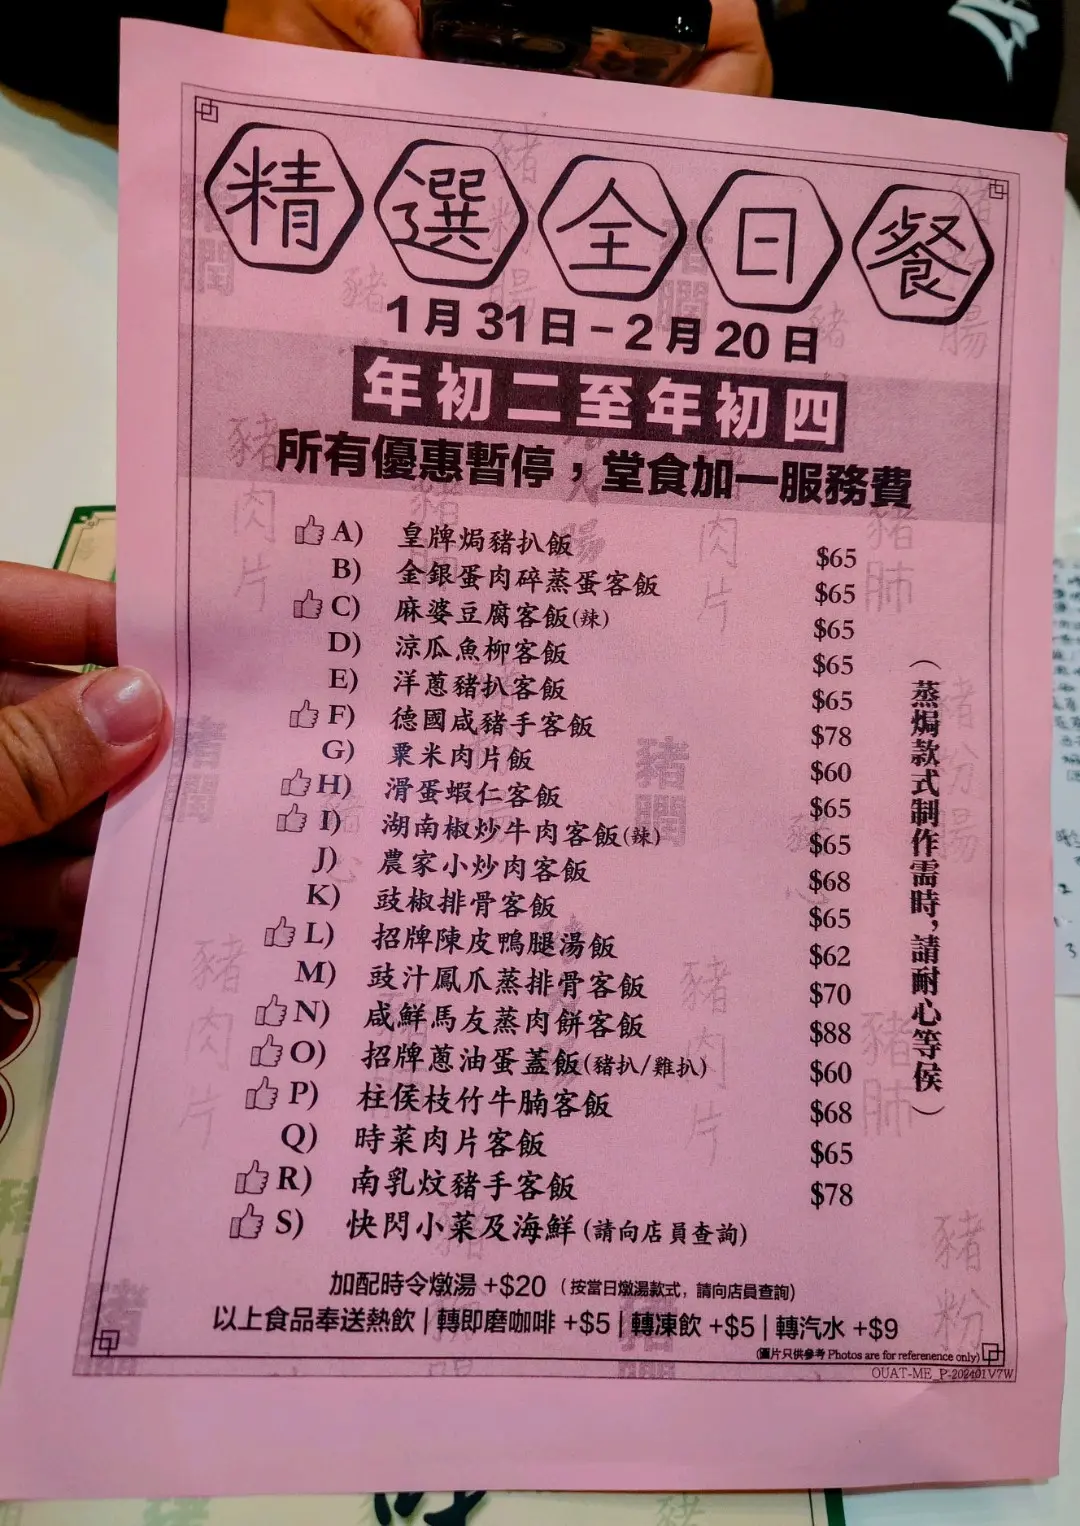 精選全日餐
1月31日－2月20日
年初二至年初四
所有優惠暫停，堂食加一服務費
A) 皇牌焗豬扒飯 $65
B) 金銀蛋肉碎蒸蛋客飯 $65
C) 麻婆豆腐客飯(辣) $65
D) 涼瓜魚柳客飯 $65
E) 洋蔥豬扒客飯 $65
F) 德國咸豬手客飯 $78
G) 粟米肉片飯 $60
H) 滑蛋蝦仁客飯 $65
I) 湖南椒炒牛肉客飯(辣) $65
J) 農家小炒肉客飯 $68
K) 豉椒排骨客飯 $65
L) 招牌陳皮鴨腿湯飯 $62
M) 豉汁鳳爪蒸排骨客飯 $70
N) 咸鮮馬友蒸肉餅客飯 $88
O) 招牌蔥油蛋蓋飯(豬扒/雞扒) $60
P) 柱侯枝竹牛腩客飯 $68
Q) 時菜肉片客飯 $65
R) 南乳炆豬手客飯 $78
S) 快閃小菜及海鮮(請向店員查詢)
（蒸焗款式制作需時，請耐心等侯）
加配時令燉湯 +$20（按當日燉湯款式，請向店員查詢）
以上食品奉送熱飲｜轉即磨咖啡 +$5｜轉凍飲 +$5｜轉汽水 +$9
(圖片只供參考 Photos are for referenence only)
OUAT-ME_P-202401V7W